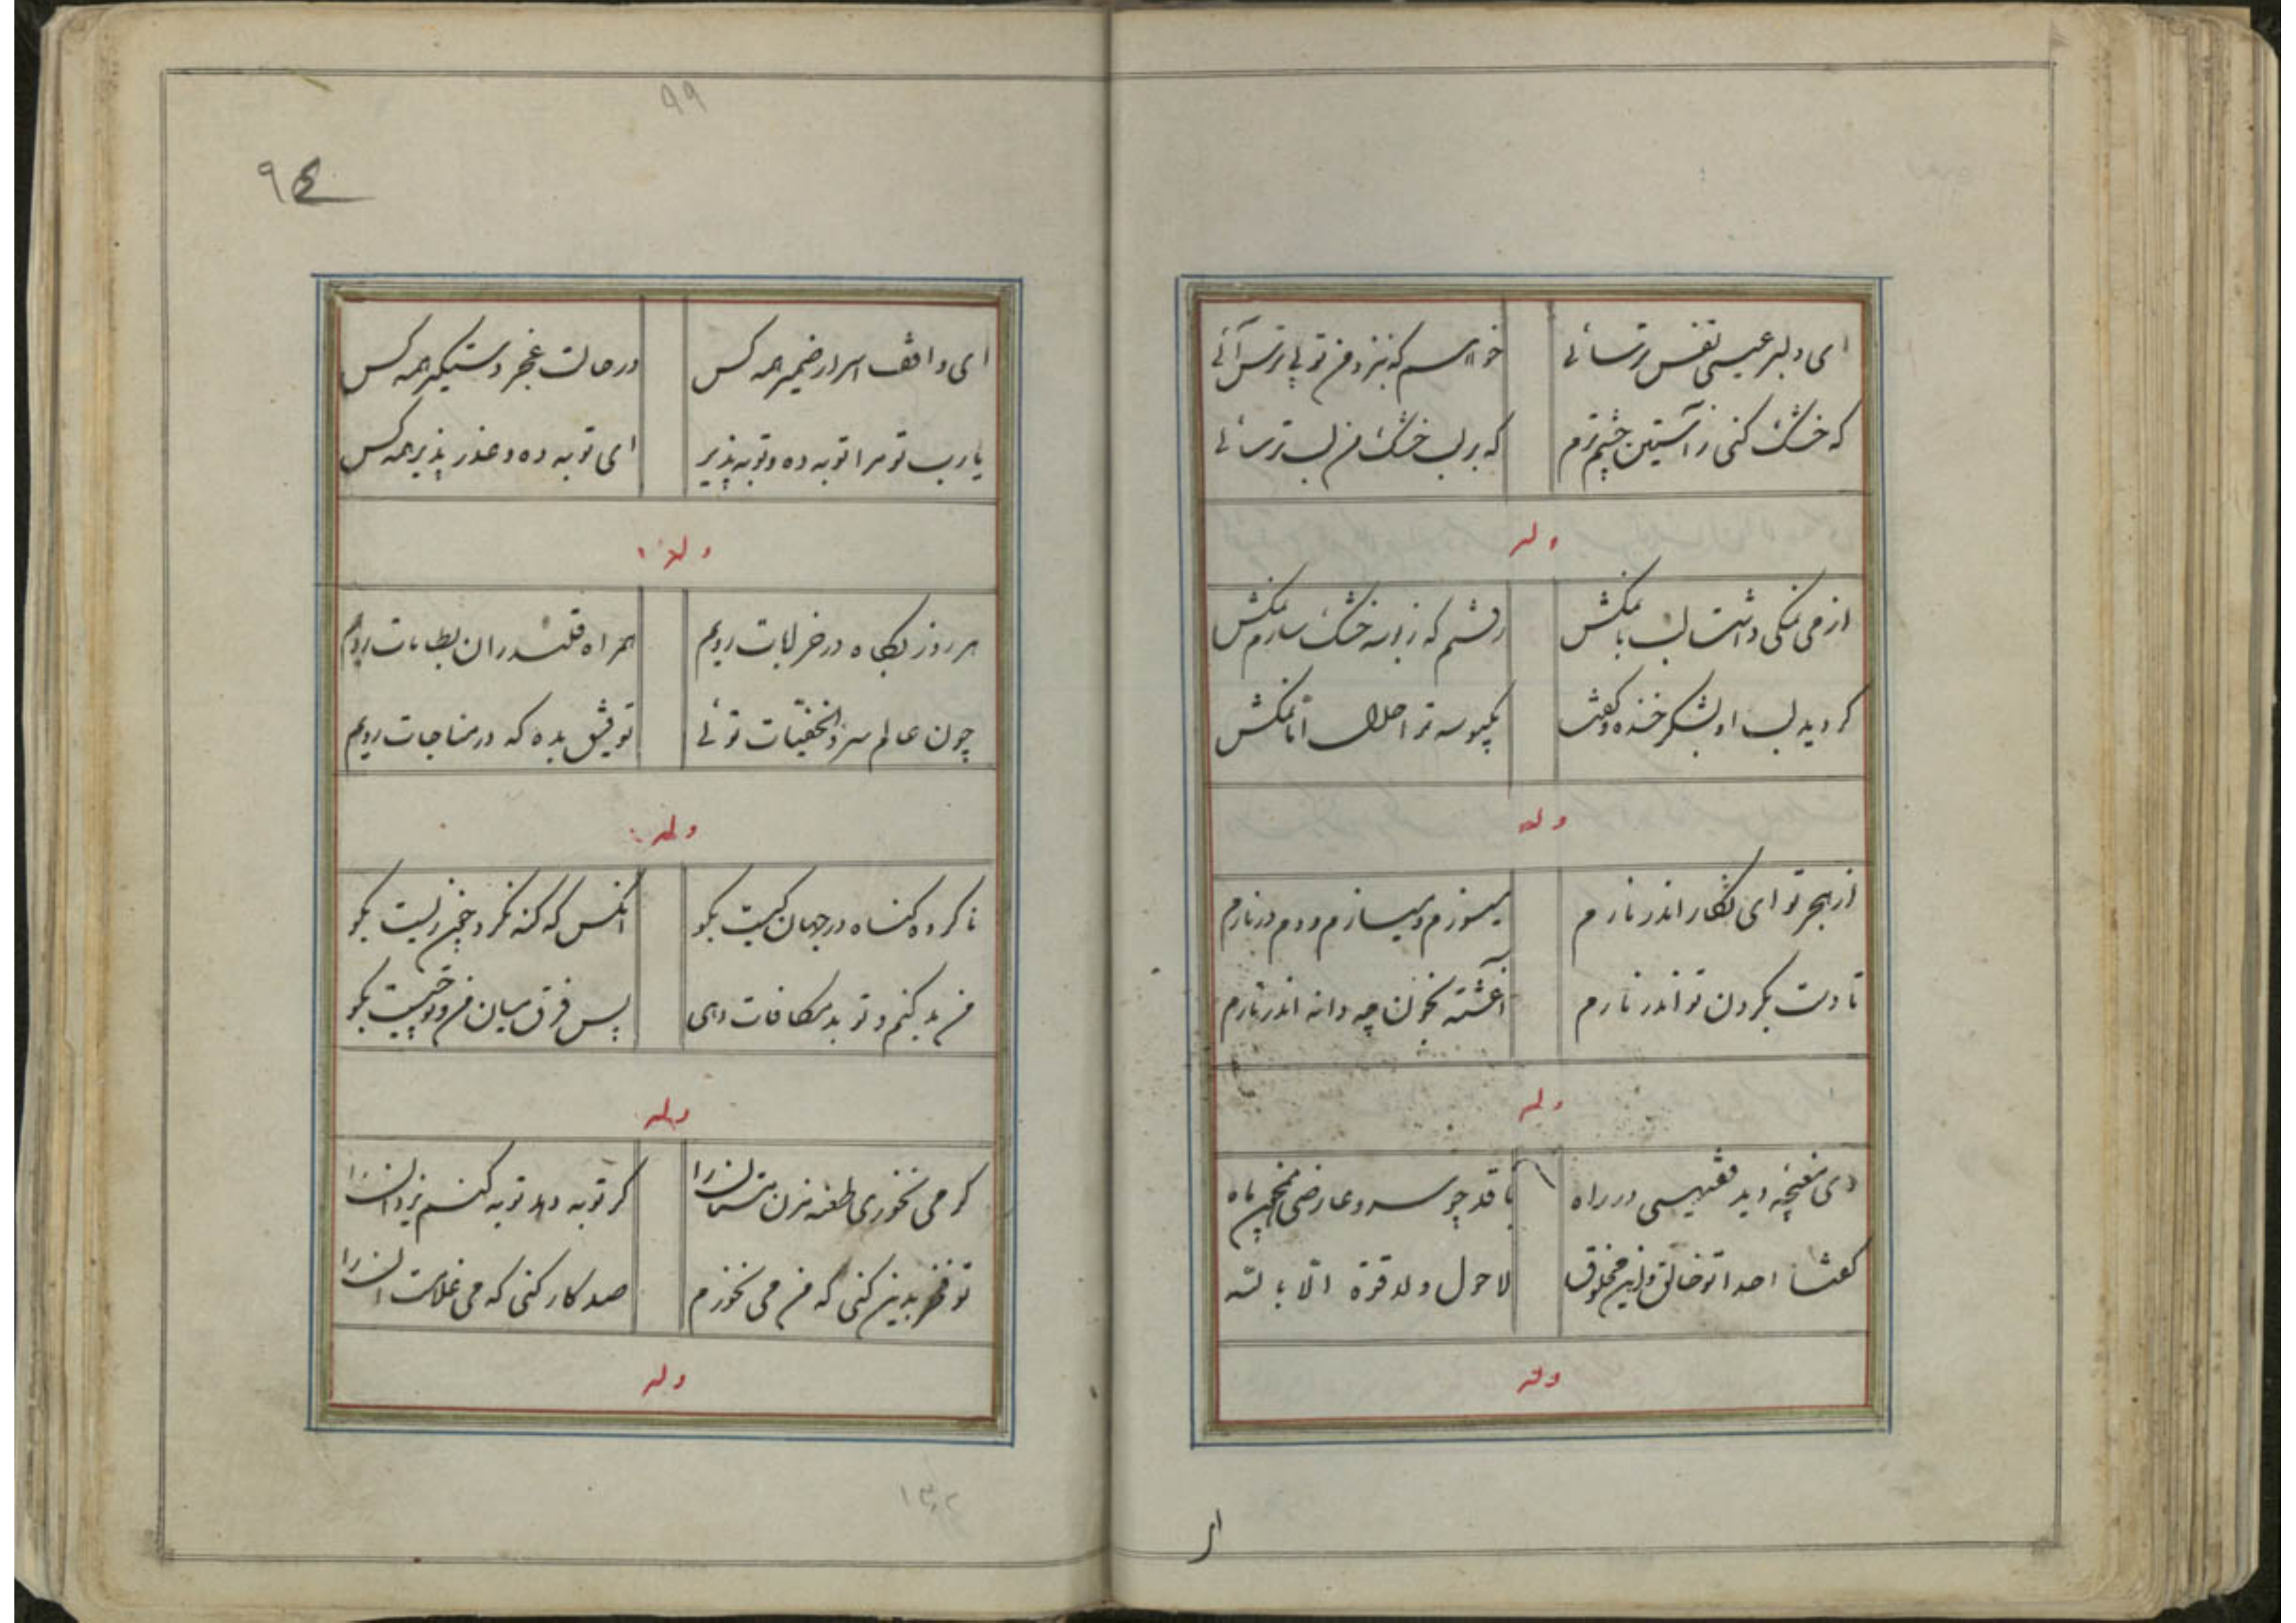 ای دلبر عیسی نفس ترسائی
خواهم که بنزد من تو بی ترس آئی
که خشک کنی ز آستین چشم ترم
که بر لب خشک من لب تر سائی
وله
از می نمکی داشت لب با نمکش
رفتم که ز بوسه خشک سازم نمکش
کردید لب او بشکر خنده و گفت
یکبوسه ترا حلال اما نمکش
وله
از هجر تو ای نگار اندر نارم
میسوزم و میسازم و دم درنارم
تا دست بگردن تو اندر نارم
آغشته بخون چه دانه اندر نارم
وله
دی مغبچه دید فقیهی در راه
با قد چو سرو عارضی همچون ماه
گفتا احدا تو خالق و این مخلوق
لا حول ولا قوة الا بالله
وله
از
۹۹
۹٤
ای واقف اسرار ضمیر همه کس
در حالت عجز دستگیر همه کس
یا رب تو مرا توبه ده و توبه پذیر
ای توبه ده و عذر پذیر همه کس
وله
هر روز بگاه در خرابات رویم
همراه قلندران بطامات رویم
چون عالم سر و الخفیات توئی
توفیق بده که در مناجات رویم
وله
ناکرده گناه در جهان کیست بگو
آنکس که گنه نکرد چون زیست بگو
من بد کنم و تو بد مکافات دهی
پس فرق میان من و تو چیست بگو
وله
گر می نخوری طعنه مزن مستان را
گر توبه دهد توبه کنم یزدان را
تو فخر بدین کنی که من می نخورم
صد کار کنی که می غلامست آن را
وله